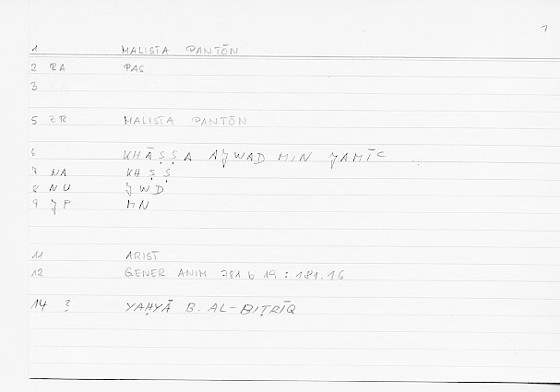 1
1 MALISTA PANTŌN
2 RA PAS
3
5 ZR MALISTA PANTŌN
6 KHĀṢṢA AJWAD MIN JAMĪC
7 NA KH Ṣ Ṣ
8 NU JWD
9 JP MN
11 ARIST
12 GENER ANIM 781 b 19 : 181.16
14 ? YAḤYĀ B. AL-BIṬRĪQ